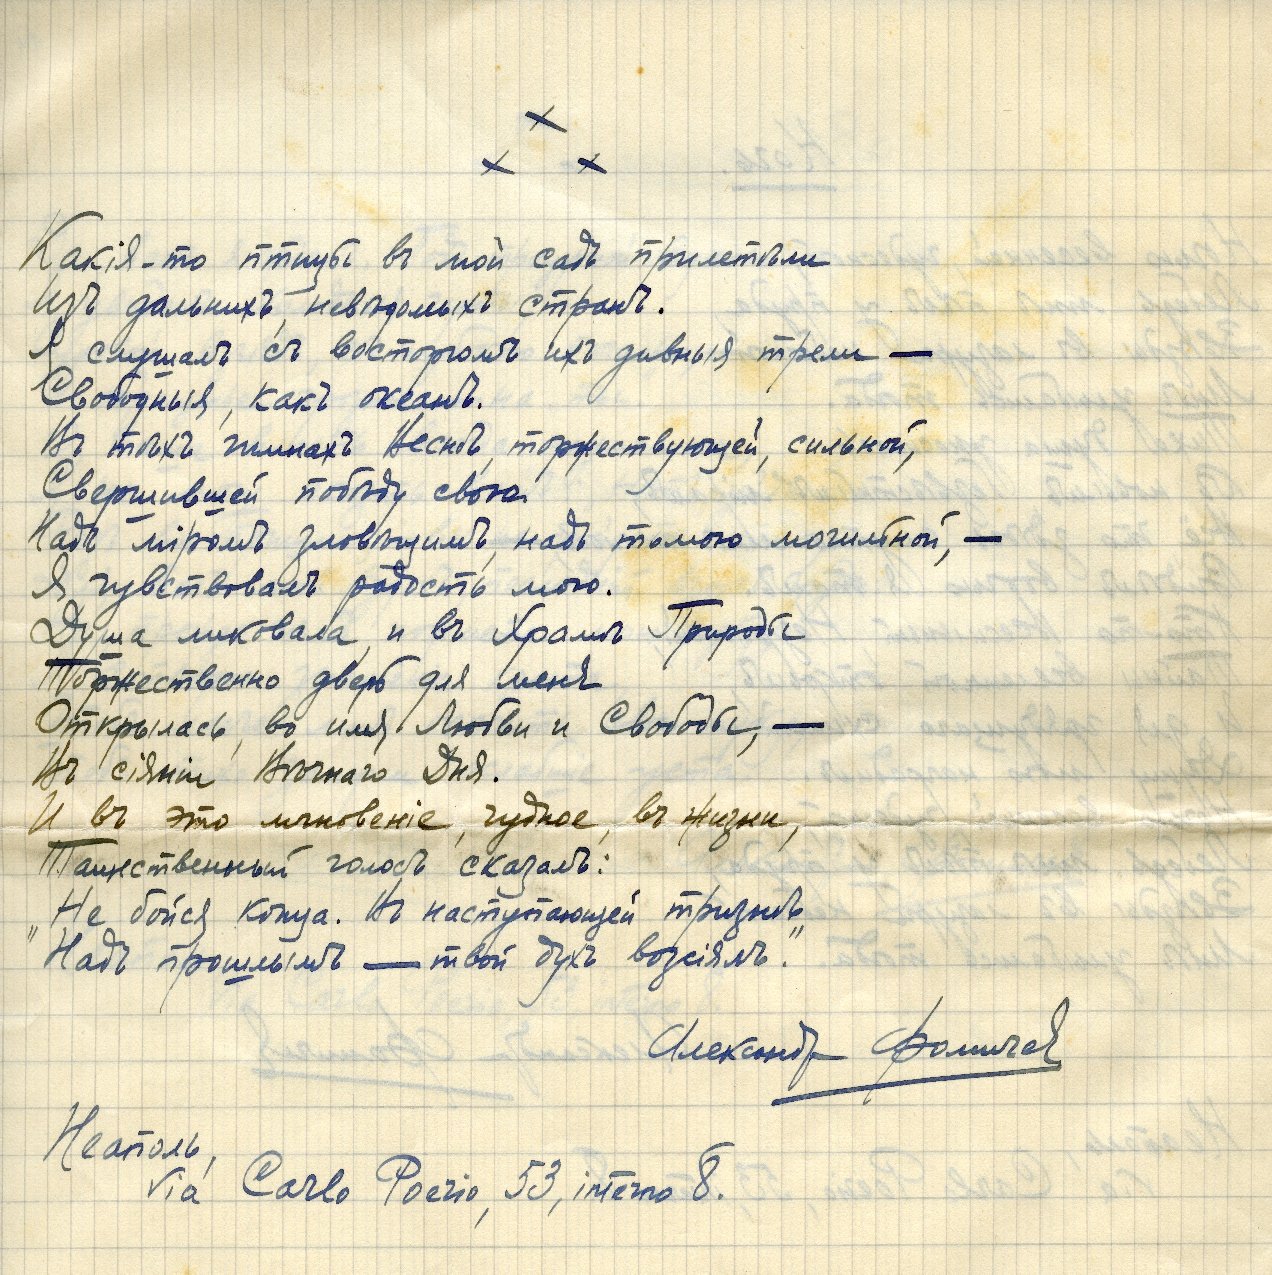 х
х х
Какія-то птицы въ мой садъ прилетѣли
Изъ дальнихъ, невѣдомыхъ странъ.
Я слушалъ съ восторгомъ ихъ дивныя трели —
Свободныя, какъ океанъ.
Въ тѣхъ гимнахъ Веснѣ, торжествующей, сильной,
Свершившей побѣду свою
Надъ міромъ зловѣщимъ, надъ тьмою могильной, —
Я чувствовалъ радость мою.
Душа ликовала, и въ Храмъ Природы
Торжественно дверь для меня
Открылась, во имя Любви и Свободы, —
Въ сіяніи Вѣчнаго Дня.
И въ это мгновеніе, чудное, въ жизни,
Таинственный голосъ сказалъ:
„Не бойся конца. Въ наступающей тризнѣ
Надъ прошлымъ — твой духъ возсіялъ."
Александръ Фомичев
Неаполь,
Via Carlo Poerio, 53, interno 8.